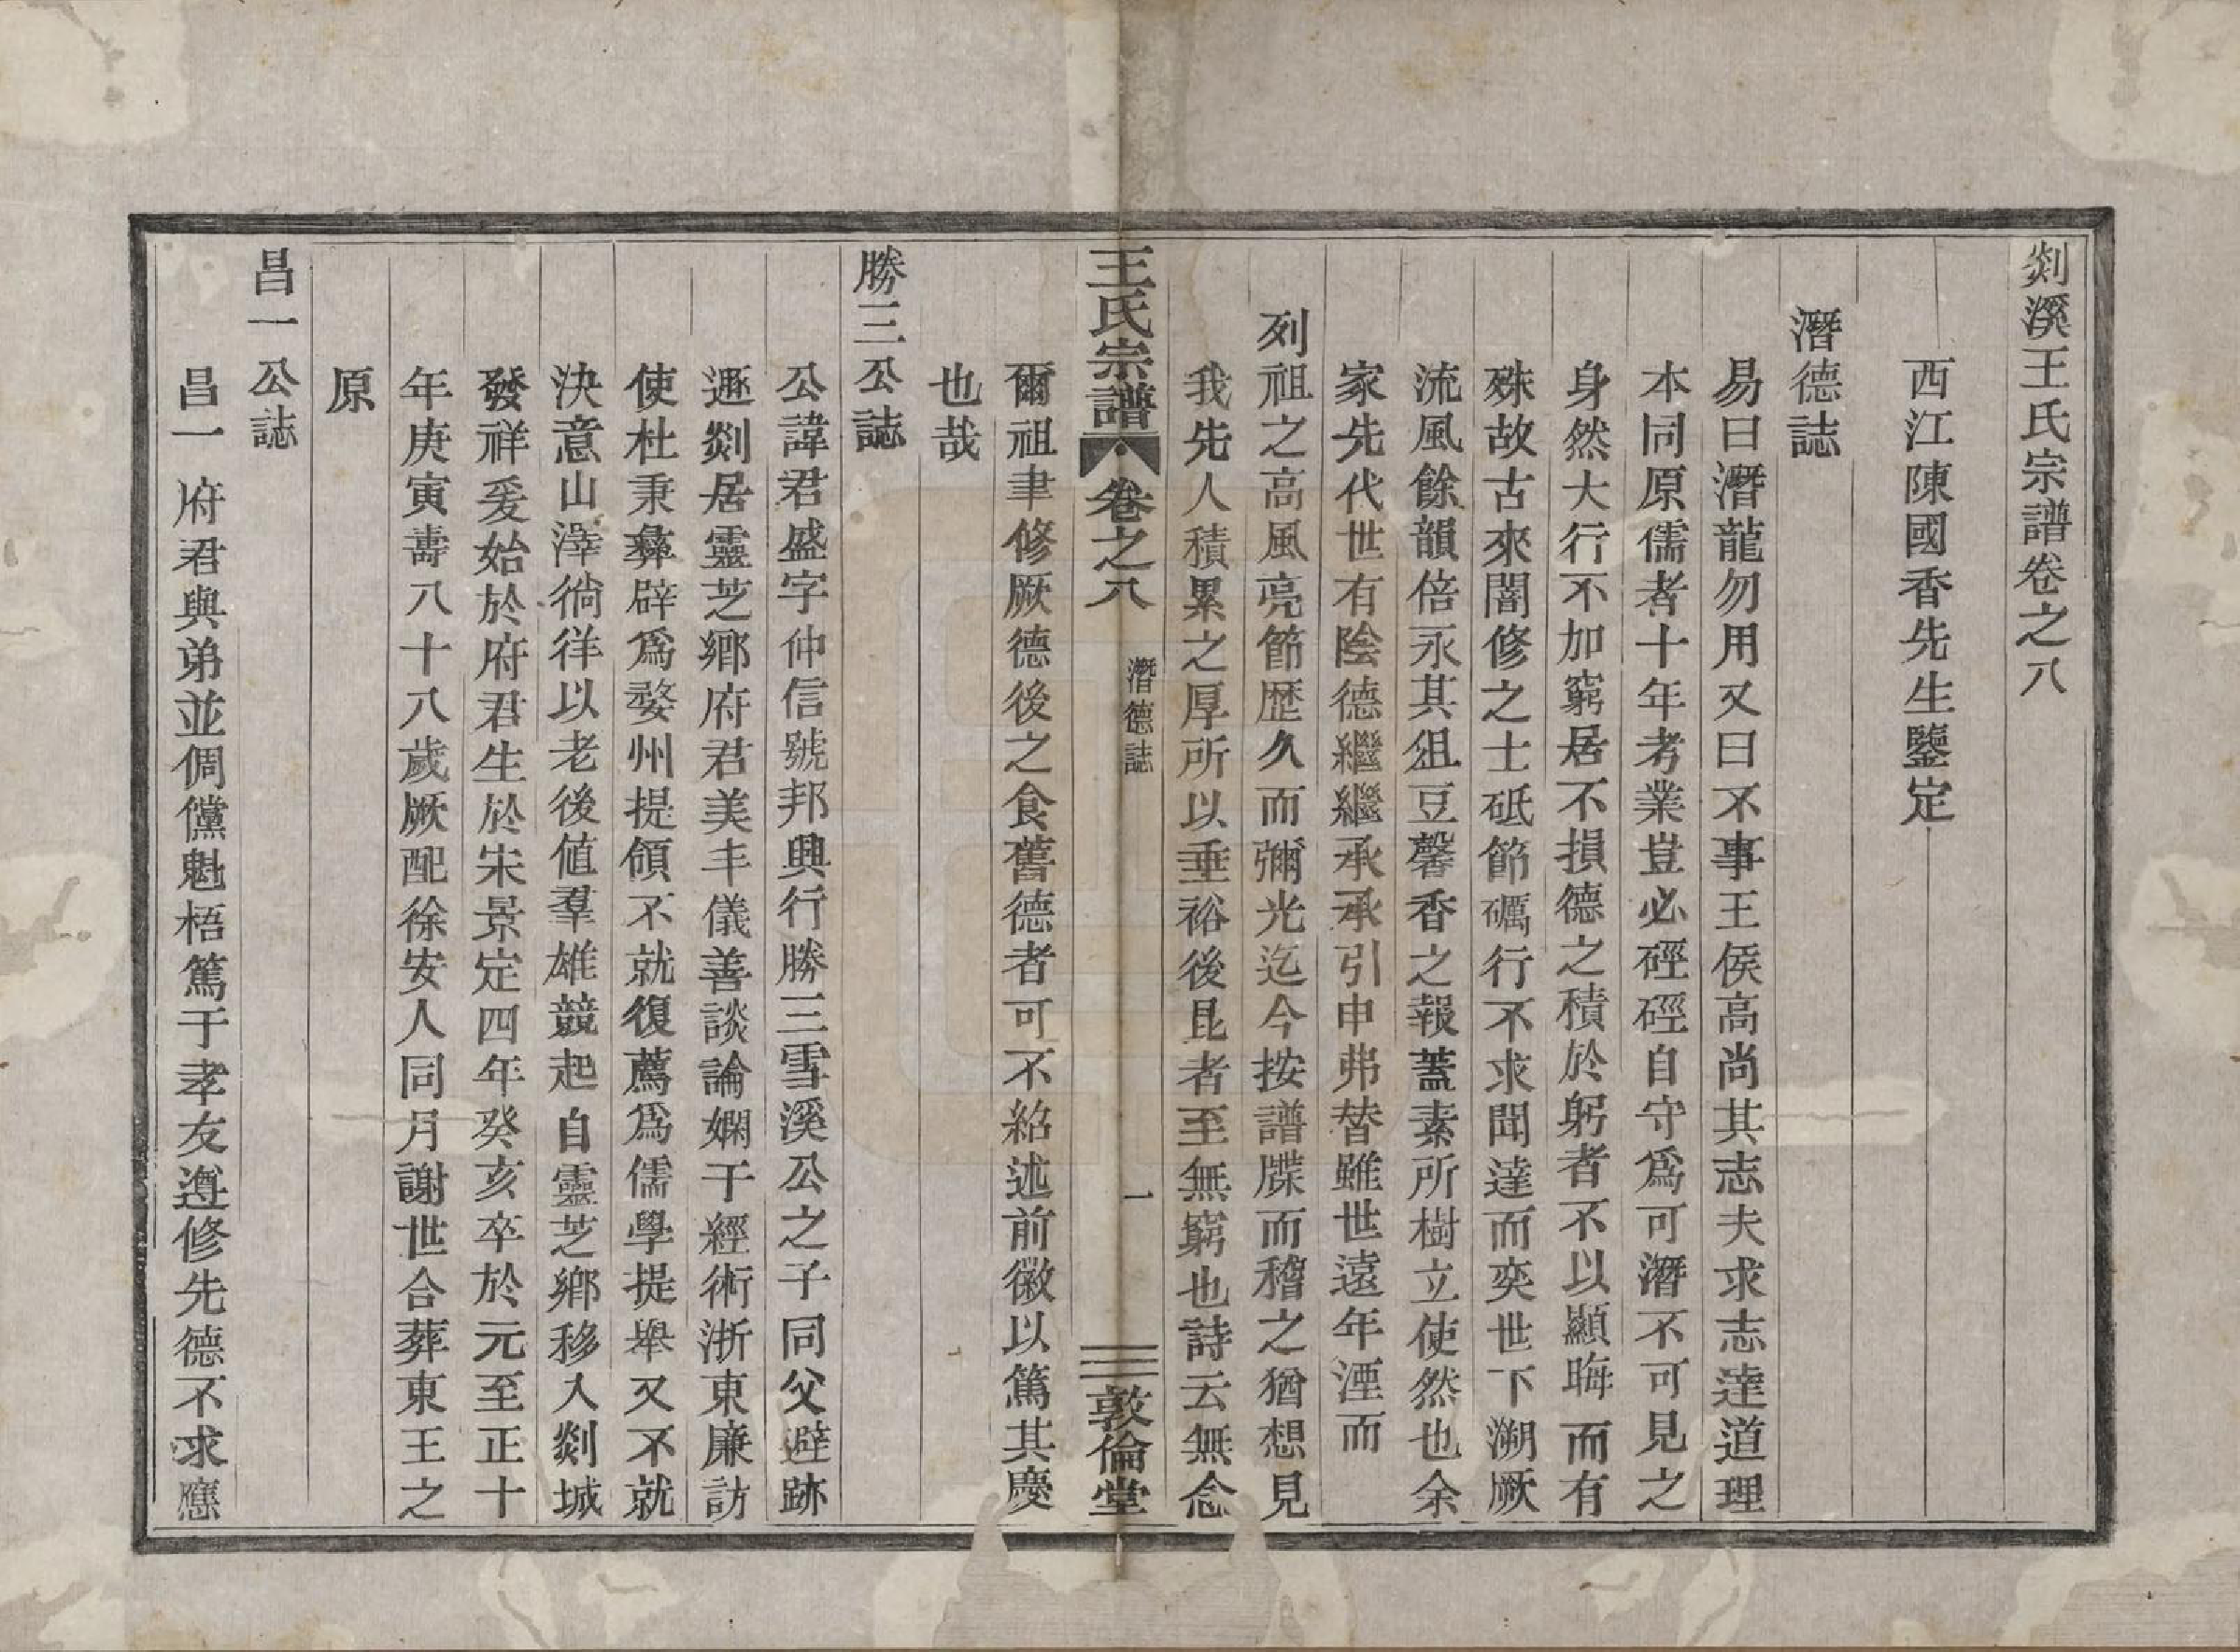 剡溪王氏宗譜卷之八
西江陳國香先生鑒定
潛德誌
易曰潛龍勿用又曰不事王侯高尚其志夫求志達道理
本同原儒者十年考業豈必硜硜自守爲可潛不可見之
身然大行不加窮居不損德之積於躬者不以顯晦而有
殊故古來闇修之士砥節礪行不求聞達而奕世下溯厥
流風餘韻倍永其俎豆馨香之報蓋素所樹立使然也余
家先代世有陰德繼繼承承引申弗替雖世遠年湮而
列祖之高風亮節歷久而彌光迄今按譜牒而稽之猶想見
我先人積累之厚所以垂裕後昆者至無窮也詩云無念
王氏宗譜 卷之八 潛德誌 一 敦倫堂
爾祖聿修厥德後之食舊德者可不紹述前徽以篤其慶
也哉
勝三公誌
公諱君盛字仲信號邦興行勝三雪溪公之子同父避跡
遯剡居靈芝鄉府君美丰儀善談論嫻于經術浙東廉訪
使杜秉彝辟爲婺州提領不就復薦爲儒學提舉又不就
決意山澤徜徉以老後値羣雄競起自靈芝鄉移入剡城
發祥爰始於府君生於宋景定四年癸亥卒於元至正十
年庚寅壽八十八歲厥配徐安人同月謝世合葬東王之
原
昌一公誌
昌一府君與弟並倜儻魁梧篤于孝友遵修先德不求應